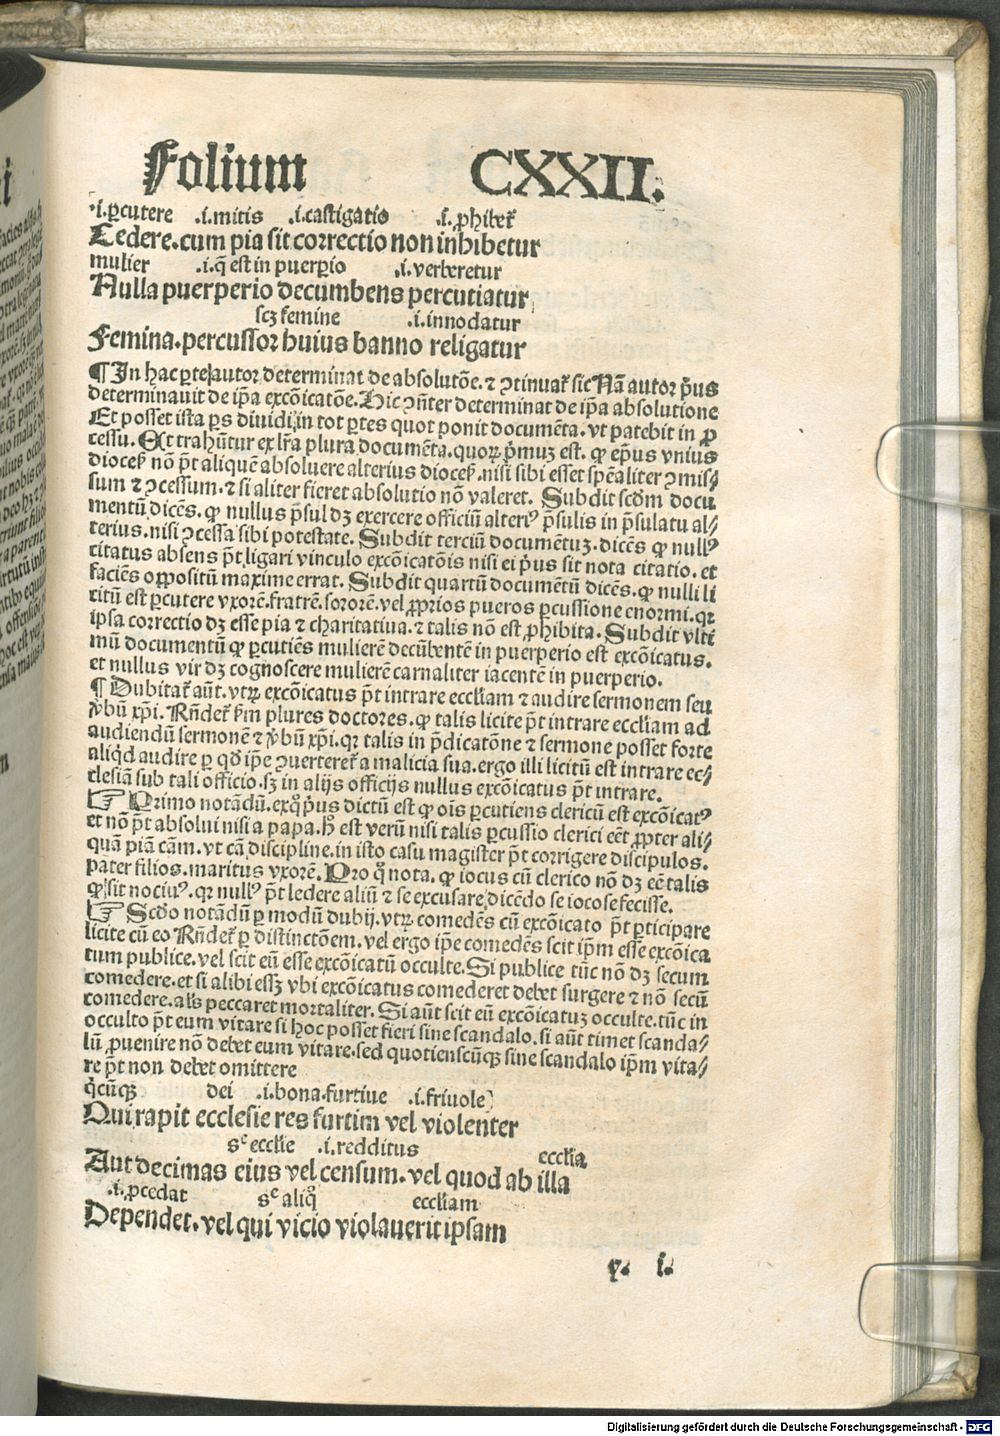 Folium CXXII.
.i.ꝑcutere .i.mitis .i.castigatio .i.ꝓhibet᷑
Ledere.cum pia sit correctio non inhibetur
mulier .i.q̄ est in puerꝑio .i.verberetur
Nulla puerperio decumbens percutiatur
scꝫ femine .i.innodatur
Femina.percussor huius banno religatur
¶ In hac ꝑte autor determinat de absolutōe.⁊ ↄtinuat᷑ sic Nā autor p̄us
determinauit de ip̄a excōicatōe. Hic ↄn̄ter determinat de ip̄a absolutione
Et posset ista ꝑs diuidi in tot ꝑtes quot ponit documēta.vt patebit in ꝓ
cessu. Et trahūtur ex lr̄a plura documēta.quoꝝ p̄muꝫ est. ꝙ ep̄us vnius
dioceẜ nō p̄t aliquē absoluere alterius dioceẜ.nisi sibi esset sp̄ealiter ↄmis/
sum ⁊ ↄcessum.⁊ si aliter fieret absolutio nō valeret. Subdit scd̄m docu
mentū dicēs. ꝙ nullus p̄sul dꝫ exercere officiū alteriꝰ p̄sulis in p̄sulatu al/
terius.nisi ↄcessa sibi potestate. Subdit terciū documētuꝫ.dicēs ꝙ nullꝰ
citatus absens p̄t ligari vinculo excōicatōis nisi ei p̄us sit nota citatio. et
faciēs oppositū maxime errat. Subdit quartū documētū dicēs.ꝙ nulli li
citū est ꝑcutere vxorē.fratrē.sororē.vel ꝓprios pueros ꝑcussione enormi.qꝛ
ipsa correctio dꝫ esse pia ⁊ charitatiua.⁊ talis nō est ꝓhibita. Subdit vlti
mū documentū ꝙ ꝑcutiēs mulierē decūbentē in puerperio est excōicatus.
et nullus vir dꝫ cognoscere mulierē carnaliter iacentē in puerperio.
¶ Dubitat᷑ aūt.vtꝝ excōicatus p̄t intrare eccl̄iam ⁊ audire sermonem seu
v̾bū xp̄i. Rn̄det᷑ ẜm plures doctores.ꝙ talis licite p̄t intrare eccl̄iam ad
audiendū sermonē ⁊ v̾bū xp̄i.qꝛ talis in p̄dicatōne ⁊ sermone posset forte
aliqͥd audire ꝑ qd̄ ip̄e ↄuerteret᷑ a malicia sua.ergo illi licitū est intrare ec/
clesiā sub tali officio.sꝫ in alijs officijs nullus excōicatus p̄t intrare.
☞ Primo notādū.exqͦ p̄us dictū est ꝙ oīs ꝑcutiens clericū est excōicatꝰ
et nō p̄t absolui nisi a papa.hͦ est verū nisi talis ꝑcussio clerici eēt ꝓpter ali/
quā piā cām.vt cā discipline.in isto casu magister p̄t corrigere discipulos.
pater filios.maritus vxorē. Pro qͦ nota. ꝙ iocus cū clerico nō dꝫ eē talis
ꝙ sit nociuꝰ.qꝛ nullꝰ p̄t ledere aliū ⁊ se excusare dicēdo se iocose fecisse.
☞ Scd̄o notādū ꝑ modū dubij.vtꝝ comedēs cū excōicato p̄t ꝑticipare
licite cū eo Rn̄det᷑ ꝑ distinctōem.vel ergo ip̄e comedēs scit ip̄m esse excōica
tum publice.vel scit eū esse excōicatū occulte. Si publice tūc nō dꝫ secum
comedere.et si alibi esseꝫ vbi excōicatus comederet debet surgere ⁊ nō secū
comedere.al̄s peccaret mortaliter. Si aūt scit eū excōicatuꝫ occulte.tūc in
occulto p̄t eum vitare si hoc posset fieri sine scandalo. si aūt timet scanda/
lū ꝓuenire nō debet eum vitare.sed quotienscūqꝫ sine scandalo ip̄m vita/
re p̄t non debet omittere
qͥcūqꝫ dei .i.bona.furtiue .i.friuole
Qui rapit ecclesie res furtim vel violenter
sᶜ eccl̄ie .i.redditus eccl̄ia
Aut decimas eius vel censum.vel quod ab illa
.i.ꝓcedat sᶜ aliqͦ eccl̄iam
Dependet.vel qui vicio violauerit ipsam
y. i.
Digitalisierung gefördert durch die Deutsche Forschungsgemeinschaft - DFG